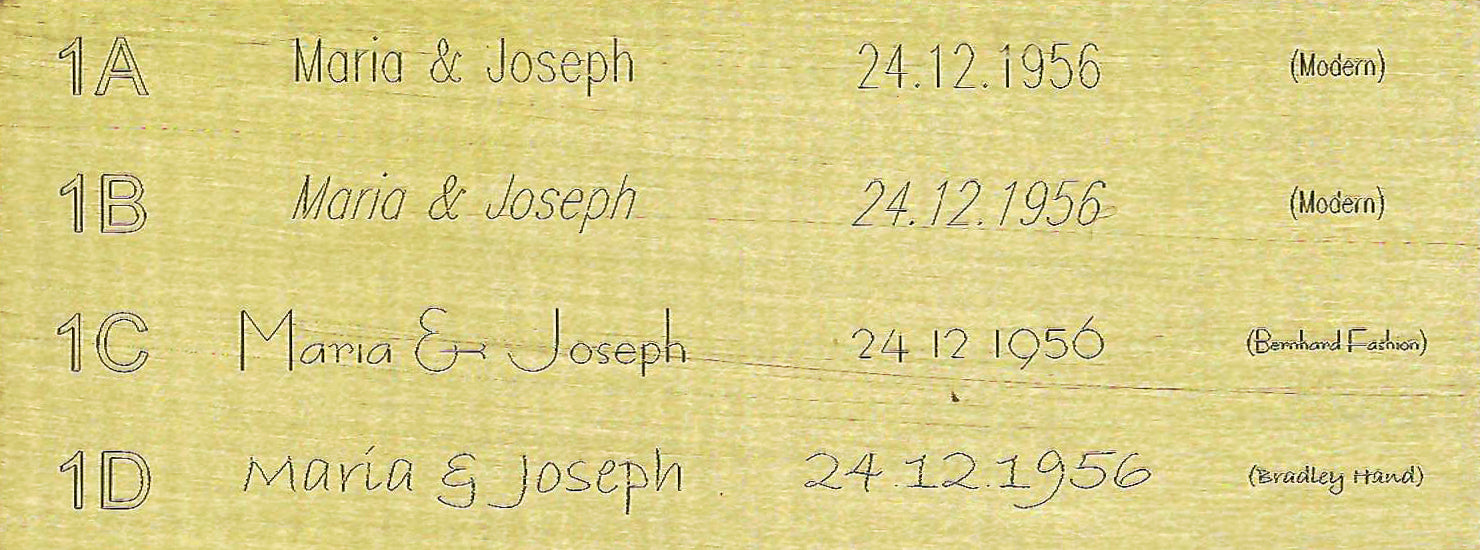 1A Maria & Joseph 24.12.1956 (Modern)
1B Maria & Joseph 24.12.1956 (Modern)
1C Maria & Joseph 24 12 1956 (Bernhard Fashion)
1D Maria & Joseph 24.12.1956 (Bradley Hand)